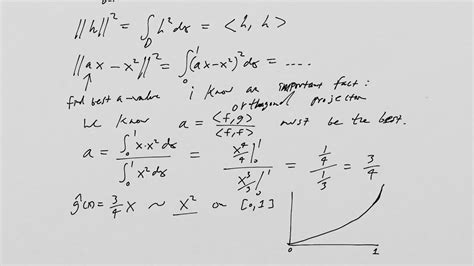 ||h||² = ∫_D h² dx = <h, h>
||ax - x²||² = ∫₀¹ (ax - x²)² dx = ....
find best a-value i know an important fact:
orthogonal projection
we know a = <f,g> / <f,f> must be the best.
a = ∫₀¹ x·x² dx / ∫₀¹ x² dx = x⁴/4 |₀¹ / x³/3 |₀¹ = 1/4 / 1/3 = 3/4
ĝ(x) = 3/4 x ~ x² on [0,1]
0 1